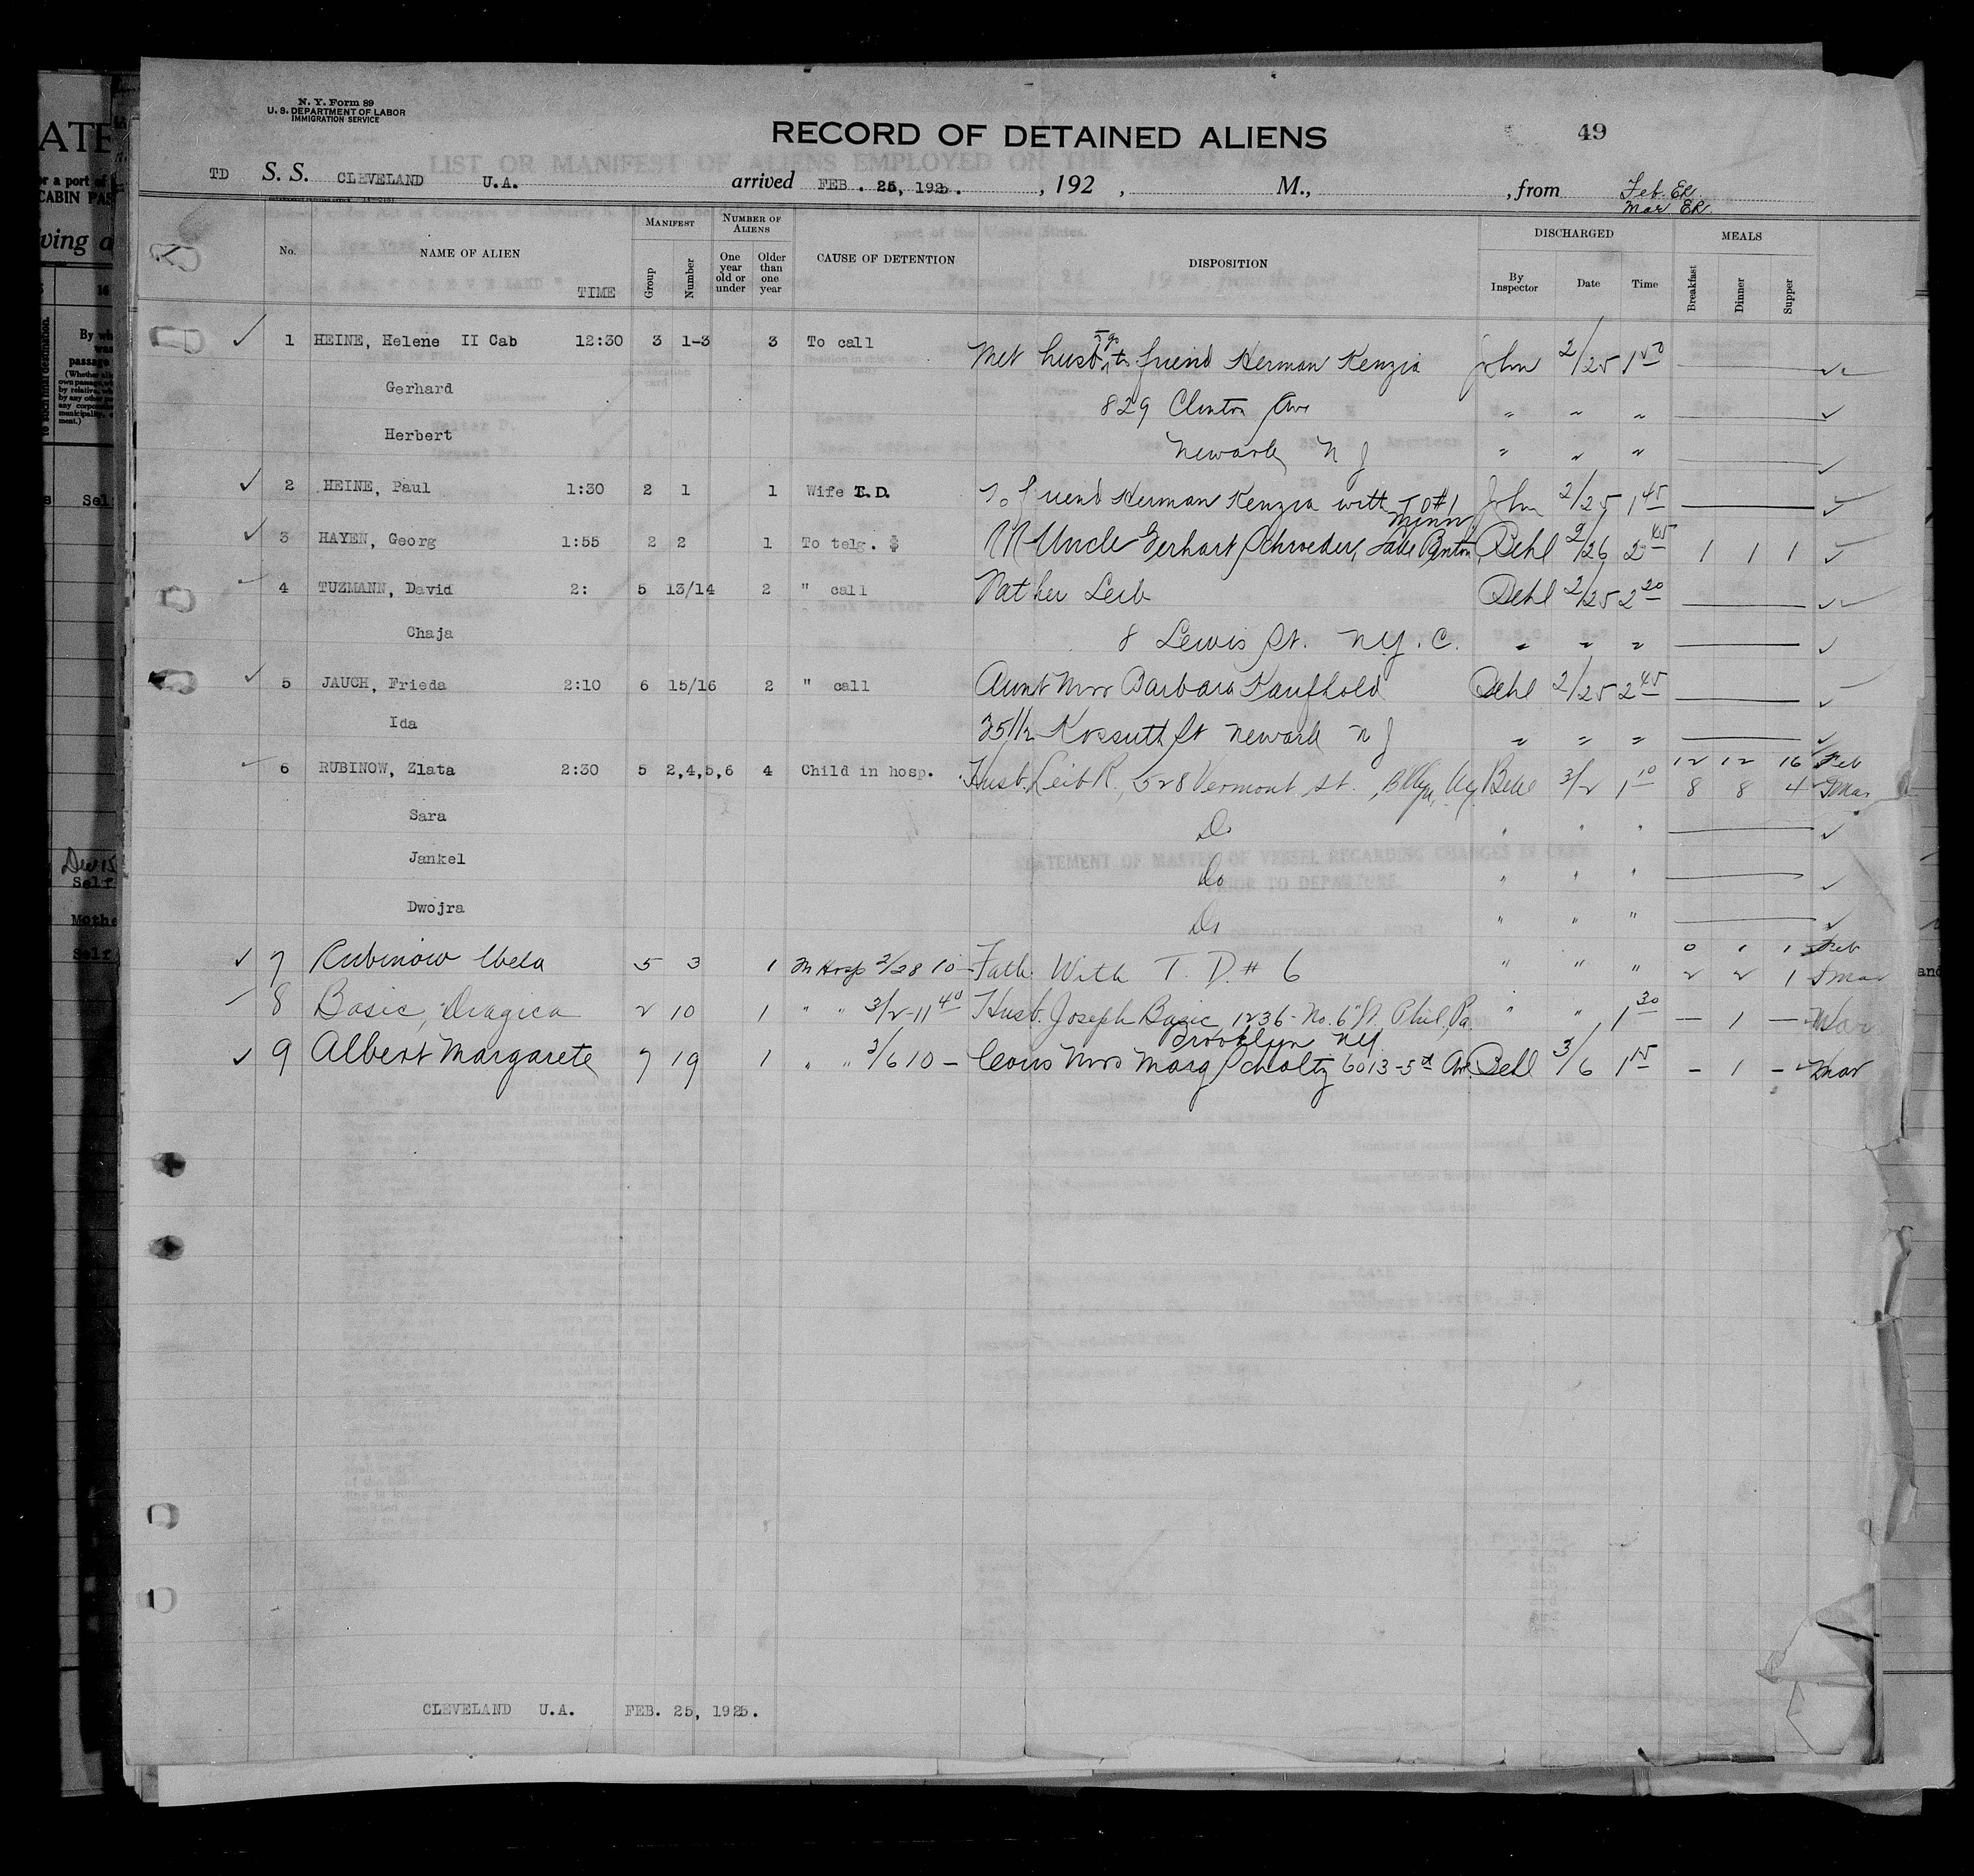 N. Y. Form 89
U. S. DEPARTMENT OF LABOR
IMMIGRATION SERVICE
RECORD OF DETAINED ALIENS 49
TD S. S. CLEVELAND U.A. arrived FEB. 25, 1925. , 192 , M., , from Feb. ER
Mar ER
No. NAME OF ALIEN TIME MANIFEST Group Number NUMBER OF ALIENS One year old or under Older than one year CAUSE OF DETENTION DISPOSITION DISCHARGED By Inspector Date Time MEALS Breakfast Dinner Supper
✓ 1 HEINE, Helene II Cab 12:30 3 1-3 3 To call Met husb to friend Herman Kenzia John 2/25 1 50
Gerhard 829 Clinton Ave " " "
Herbert Newark N J " " "
✓ 2 HEINE, Paul 1:30 2 1 1 Wife T.D. To friend Herman Kenzia with T D #1 John 2/25 1 45
Minn
✓ 3 HAYEN, Georg 1:55 2 2 1 To telg. $ Uncle Gerhart Schroeder, Lake Benton Dehl 2/26 2 45 1 1 1 ✓
4 TUZMANN, David 2: 5 13/14 2 " call Father Leib Dehl 2/25 2 20
Chaja 8 Lewis St. N.Y.C. " " " ✓
✓ 5 JAUCH, Frieda 2:10 6 15/16 2 " call Aunt Mrs Barbara Kaufhold Dehl 2/25 2 45 ✓
Ida 35 1/2 Kossuth St Newark N J " " " ✓
12 12 16 Feb
6 RUBINOW, Zlata 2:30 5 2,4,5,6 4 Child in hosp. Husb. Leib R., 528 Vermont St., Bklyn, Ny 3/2 1 10 8 8 4 Mar
Sara Do " " " ✓
Jankel Do " " " ✓
Dwojra Do " " " ✓
0 1 1 Feb
✓ 7 Rubinow 5 3 1 In Hosp 2/28 10- Fath With T. D. # 6 " " " 2 2 1 Mar
8 Basic, Dragica 2 10 1 " " 3/2-11 40 Husb. Joseph Basic 1236 - No. 6" St. Phil, Pa. " " 1 30 - 1 - Mar
Brooklyn NY
✓ 9 Albert Margarete 7 19 1 " " 3/6 10 - Cous Mrs Marg Scholtz 6013-5th Av. Dehl 3/6 1 15 - 1 - Mar
CLEVELAND U.A. FEB. 25, 1925.